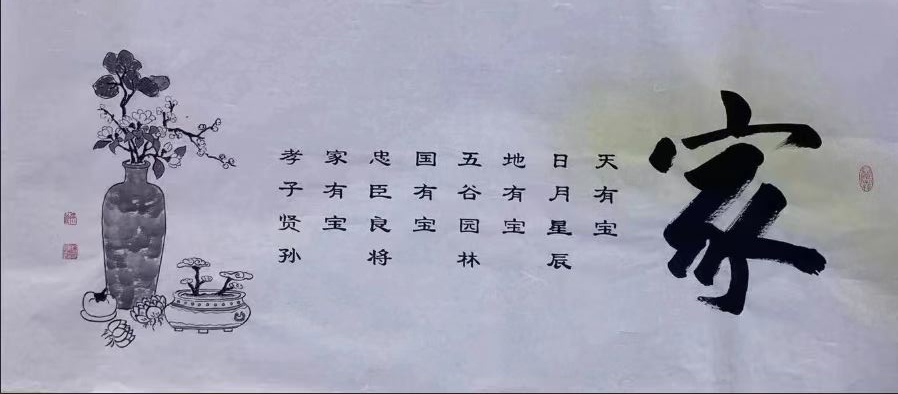 家
天有宝
日月星辰
地有宝
五谷园林
国有宝
忠臣良将
家有宝
孝子贤孙